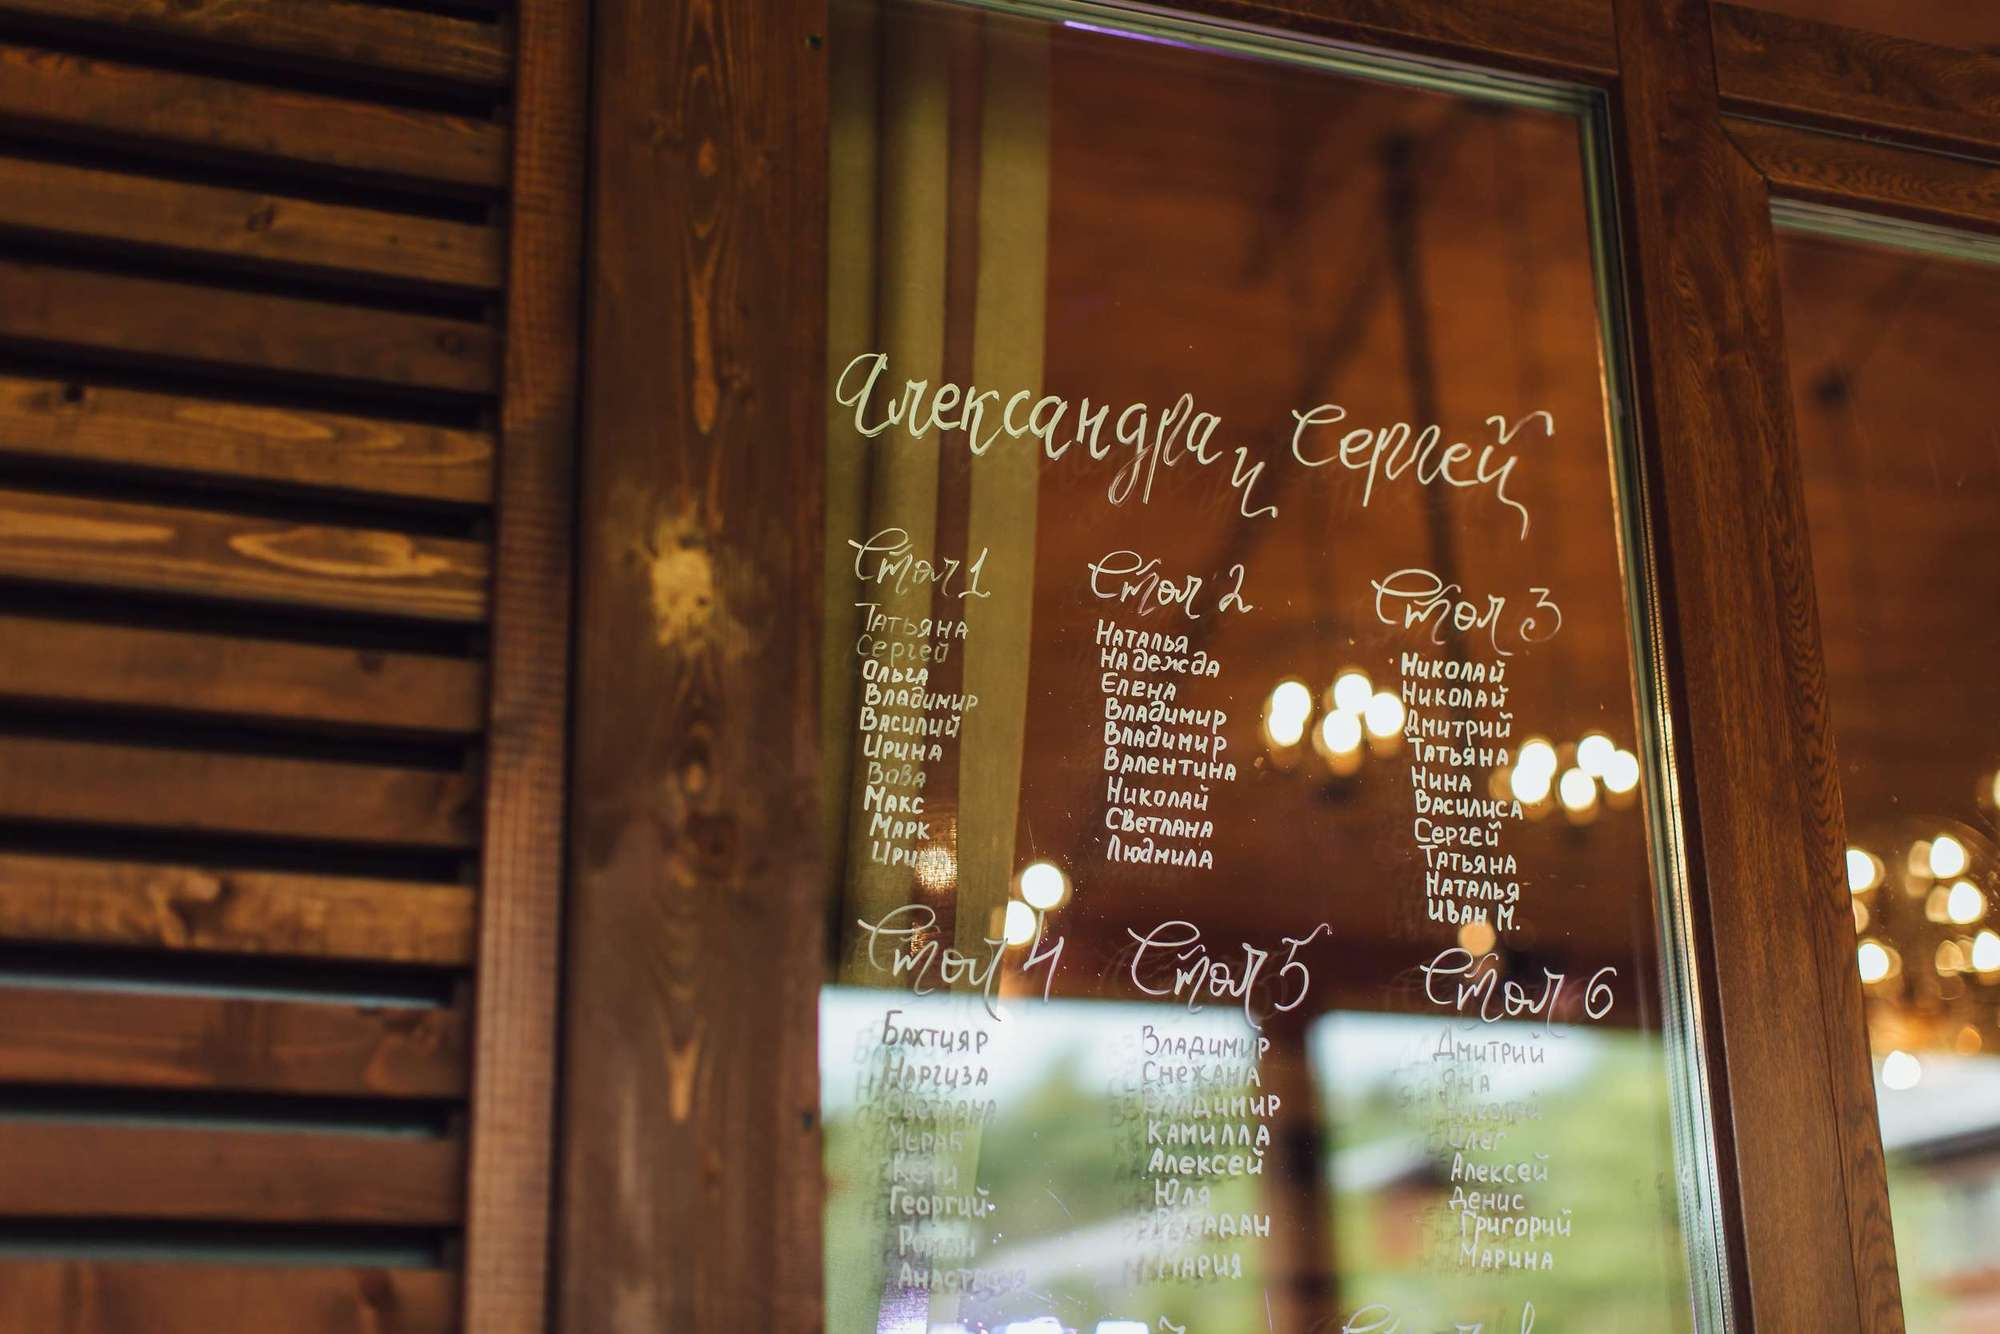 Александра и Сергей
Стол 1
Татьяна
Сергей
Ольга
Владимир
Василий
Ирина
Вова
Макс
Марк
Ирина
Стол 2
Наталья
Надежда
Елена
Владимир
Владимир
Валентина
Николай
Светлана
Людмила
Стол 3
Николай
Николай
Дмитрий
Татьяна
Нина
Василиса
Сергей
Татьяна
Наталья
Иван М.
Стол 4
Бахтияр
Наргиза
Светлана
Кети
Георгий
Роман
Анастасия
Стол 5
Владимир
Снежана
Владимир
Камилла
Алексей
Юля
Рамадан
Мария
Стол 6
Дмитрий
Яна
Николай
Олег
Алексей
Денис
Григорий
Марина